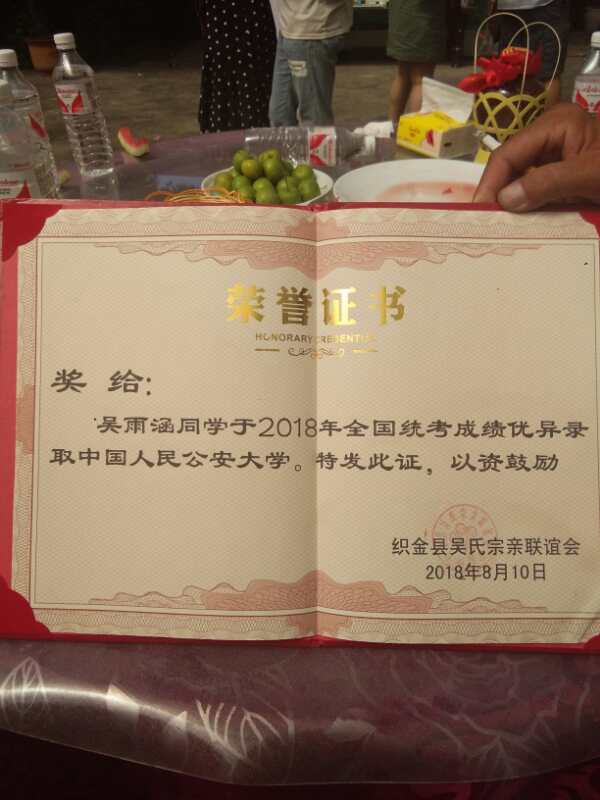 荣誉证书
HONORARY CREDENTIAL
奖 给:
吴雨涵同学于2018年全国统考成绩优异录
取中国人民公安大学。特发此证，以资鼓励
织金县吴氏宗亲联谊会
2018年8月10日